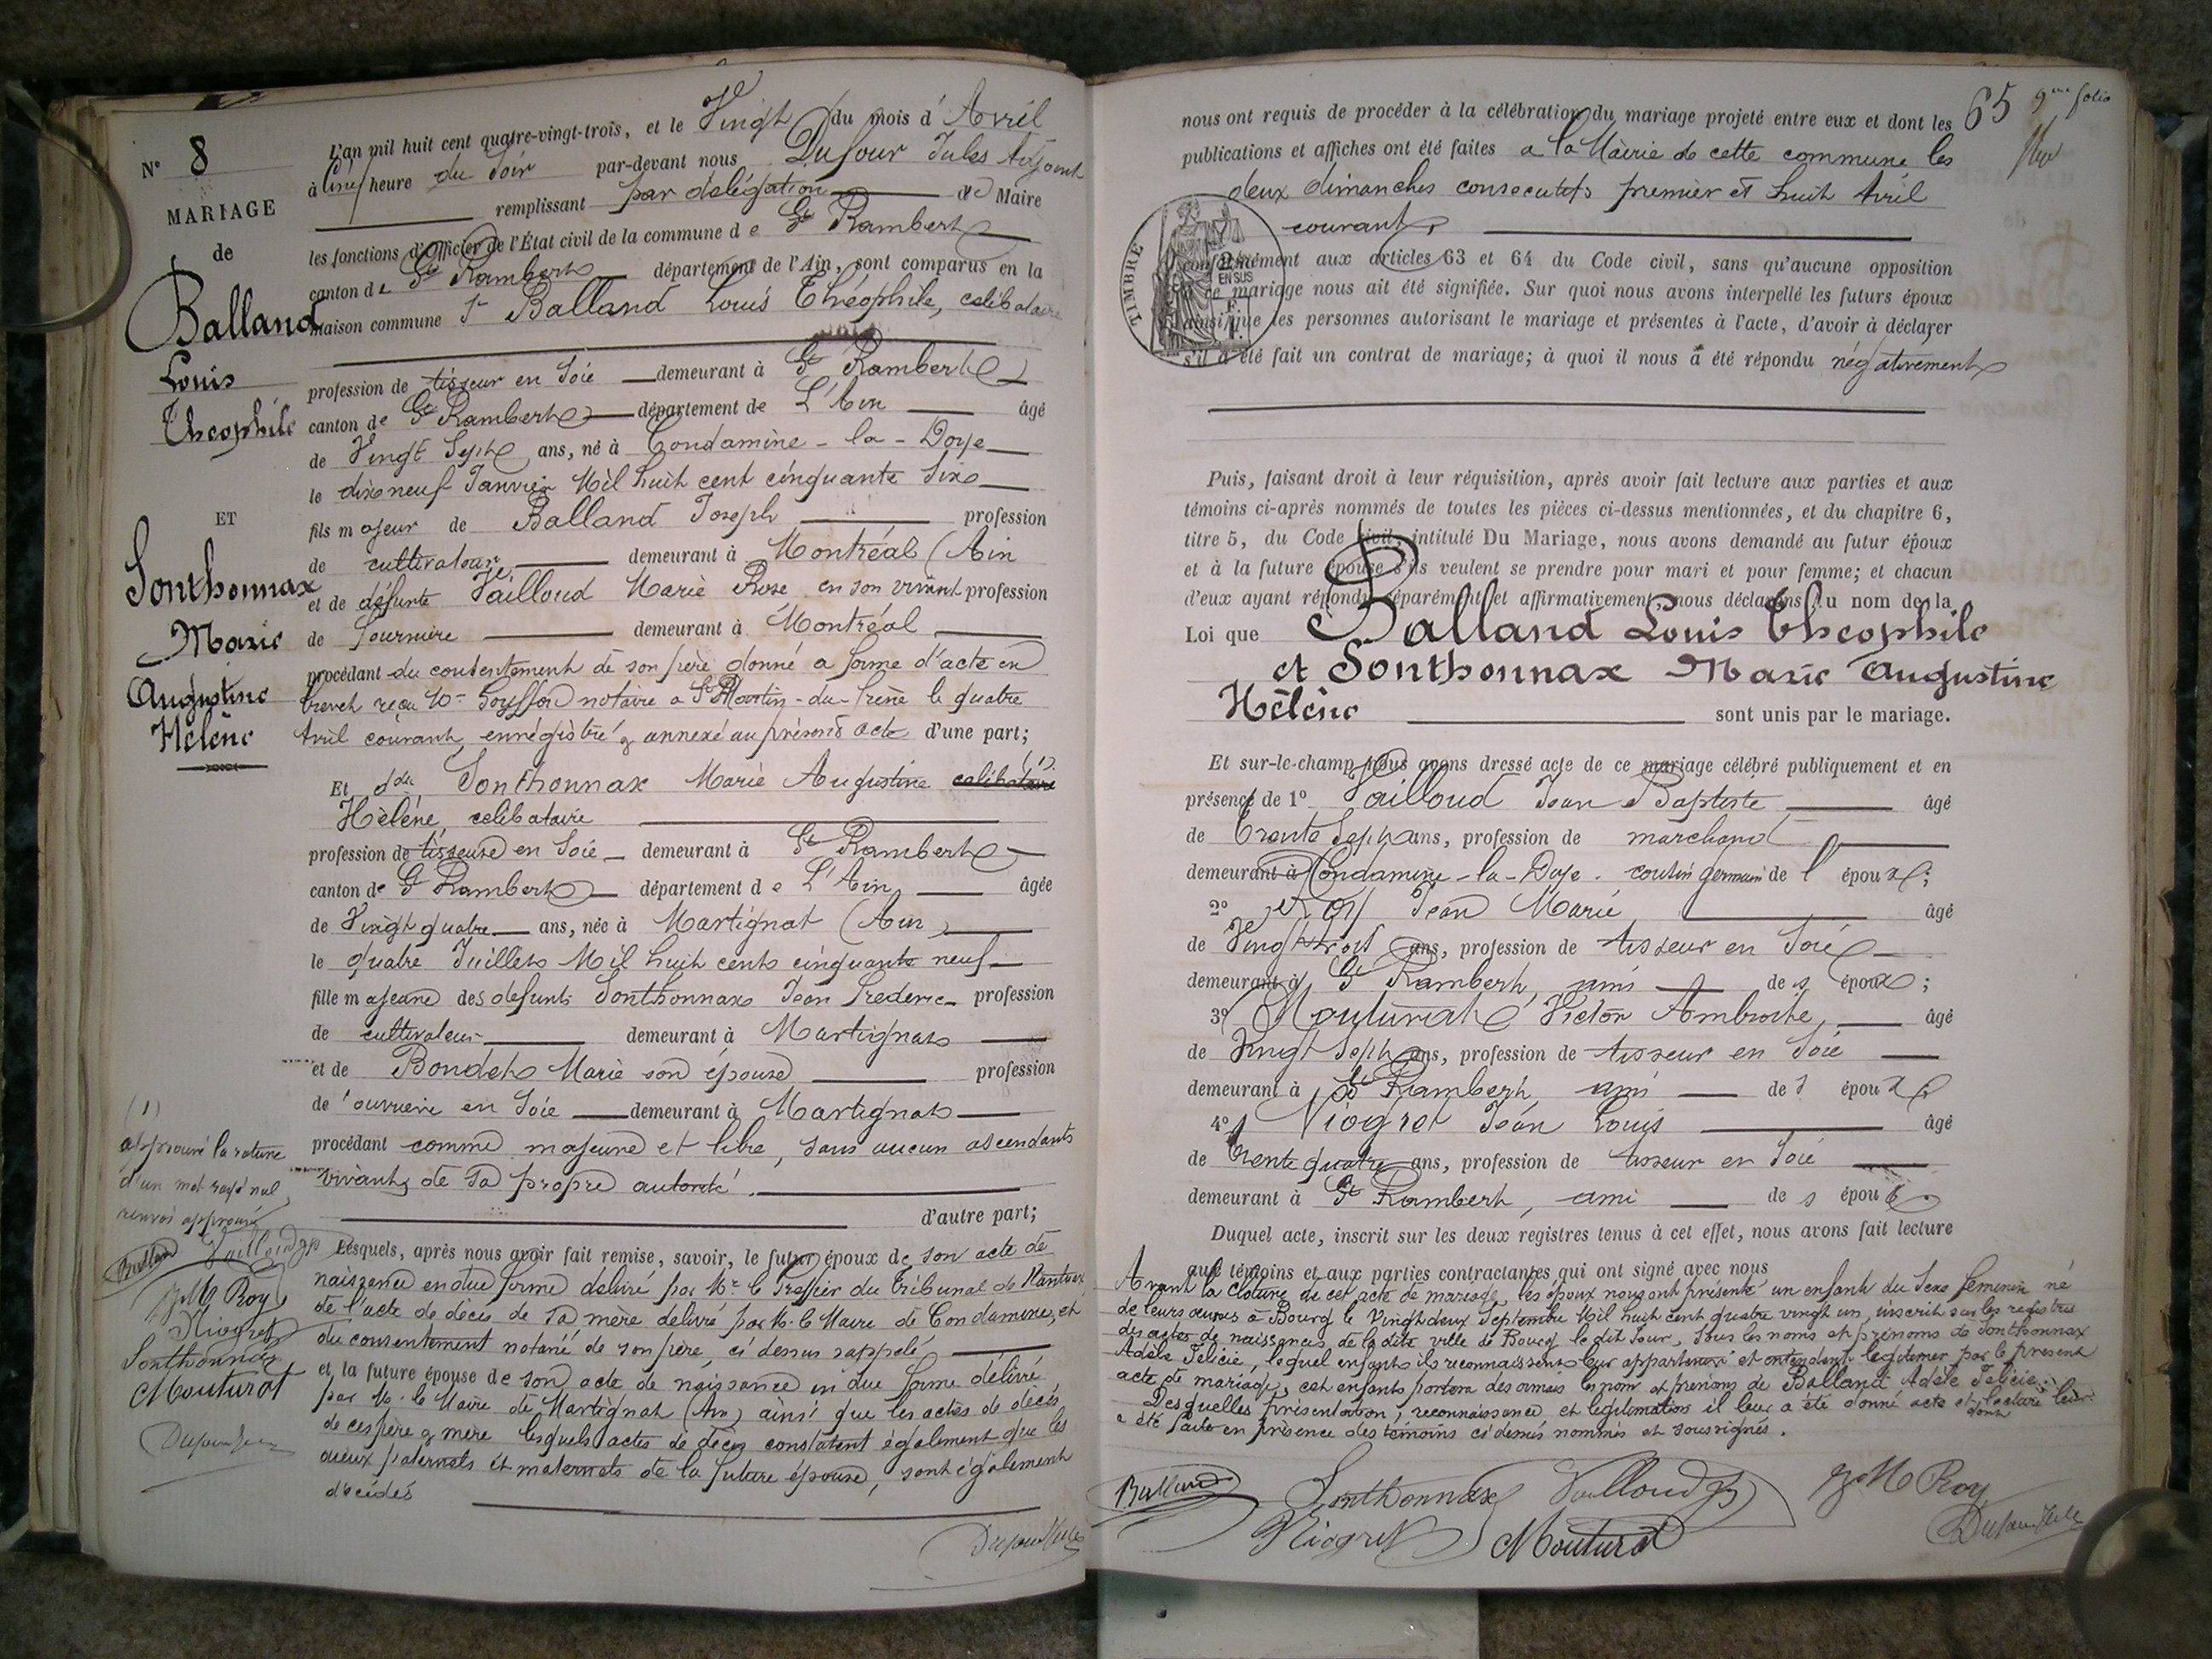 N° 8
MARIAGE
de
Balland
Louis
Théophile
ET
Sonthonnax
Marie
Augustine
Hélène
(1)
approuvé la rature
d'un mot rayé nul
renvoi approuvé
Balland Vailloud
JM Roy
Niogret
Sonthonnax
Mouturat
Dufour Jules
L'an mil huit cent quatre-vingt-trois, et le Vingt du mois d'Avril
à une heure du soir par-devant nous Dufour Jules Adjoint
remplissant par délégation de Maire
les fonctions d'Officier de l'État civil de la commune de St Rambert
canton de St Rambert département de l'Ain, sont comparus en la
maison commune 1° Balland Louis Théophile, celibataire
profession de tisseur en Soie demeurant à St Rambert
canton de St Rambert département de L'Ain âgé
de Vingt Sept ans, né à Condamine-la-Doye
le dix neuf Janvier Mil huit cent cinquante Six
fils majeur de Balland Joseph profession
de cultivateur demeurant à Montréal (Ain
et de défunte Vailloud Marie Rose en son vivant profession
de Journière demeurant à Montréal
procédant du consentement de son père donné a forme d'acte en
brevet reçu Me notaire a St Martin-du-Frène le quatre
Avril courant, enrégistré & annexé au présent acte d'une part;
Et dlle Sonthonnax Marie Augustine celibataire (1)
Hélène, celibataire
profession de tisseuse en Soie demeurant à St Rambert
canton de St Rambert département de L'Ain âgée
de Vingt quatre ans, née à Martignat (Ain)
le quatre Juillet Mil huit cent cinquante neuf
fille majeure des defunts Sonthonnax Jean Frederic profession
de cultivateur demeurant à Martignat
et de Bondet Marie son épouse profession
de ouvrière en Soie demeurant à Martignat
procédant comme majeure et libre, sans aucun ascendants
vivants de sa propre autorité.
d'autre part;
Lesquels, après nous avoir fait remise, savoir, le futur époux de son acte de
naissance en due forme delivré par Mr le Greffier du Tribunal de Nantua
de l'acte de décès de sa mère delivré par M. le Maire de Condamine, et
du consentement notarié de son père, ci dessus rappelé
et la future épouse de son acte de naissance en due forme délivré
par M. le Maire de Martignat (Ain) ainsi que les actes de décés
de ces père & mère lesquels actes de décès constatent également que les
aieux paternels et maternels de la future épouse, sont également
décédés
Dufour Jules
65 9me folio
nous ont requis de procéder à la célébration du mariage projeté entre eux et dont les
publications et affiches ont été faites a la Mairie de cette commune les
deux dimanches consecutifs premier et huit Avril
courant,
TIMBRE
2/10 EN SUS
conformément aux articles 63 et 64 du Code civil, sans qu'aucune opposition
à ce mariage nous ait été signifiée. Sur quoi nous avons interpellé les futurs époux
ainsi que les personnes autorisant le mariage et présentes à l'acte, d'avoir à déclarer
s'il a été fait un contrat de mariage; à quoi il nous a été répondu négativement
Puis, faisant droit à leur réquisition, après avoir fait lecture aux parties et aux
témoins ci-après nommés de toutes les pièces ci-dessus mentionnées, et du chapitre 6,
titre 5, du Code civil, intitulé Du Mariage, nous avons demandé au futur époux
et à la future épouse s'ils veulent se prendre pour mari et pour femme; et chacun
d'eux ayant répondu séparément et affirmativement, nous déclarons au nom de la
Loi que Balland Louis Théophile
et Sonthonnax Marie Augustine
Hélène sont unis par le mariage.
Et sur-le-champ nous avons dressé acte de ce mariage célébré publiquement et en
présence de 1° Vailloud Jean Baptiste âgé
de Trente Sept ans, profession de marchand
demeurant à Condamine-la-Doye. cousin germain de l'époux;
2° Roy Jean Marie âgé
de Vingt trois ans, profession de tisseur en Soie
demeurant à St Rambert, ami des époux;
3° Mouturat Victor Ambroise, âgé
de Vingt Sept ans, profession de tisseur en Soie
demeurant à St Rambert, ami des époux;
4° Niogret Jean Louis âgé
de Trente quatre ans, profession de tisseur en Soie
demeurant à St Rambert, ami des époux.
Duquel acte, inscrit sur les deux registres tenus à cet effet, nous avons fait lecture
aux témoins et aux parties contractantes qui ont signé avec nous
Avant la cloture de cet acte de mariage, les époux nous ont présenté un enfant du Sexe femenin né
de leurs œuvres à Bourg le Vingt deux Septembre Mil huit cent quatre vingt un, inscrit sur les registres
des actes de naissances de la dite ville de Bourg le dit Jour, sous les noms et prénoms de Sonthonnax
Adèle Felicie, lequel enfant ils reconnaissent leur appartenir et entendent legitimer par le présent
acte de mariage, cet enfant portera desormais le nom et prénoms de Balland Adèle Felicie.
Desquelles présentation, reconnaissance et legitimation il leur a été donné acte et dont lecture leur
a été faite en présence des témoins ci dessus nommés et soussignés.
Balland Sonthonnax Vailloud JM Roy
Niogret Mouturat Dufour Jules